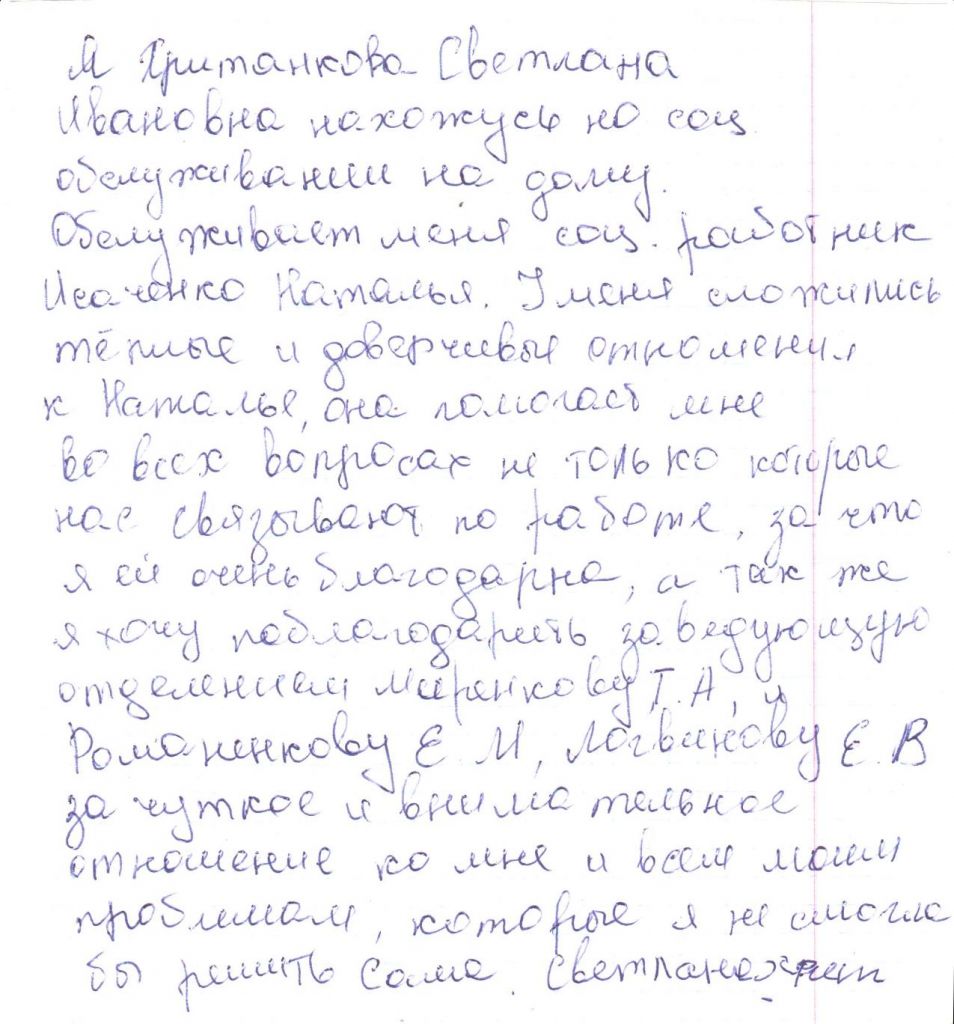 Я Хританкова Светлана
Ивановна нахожусь на соц
обслуживании на дому.
Обслуживает меня соц. работник
Исаченко Наталья. У меня сложились
тёплые и доверчивые отношения
к Наталье, она помогает мне
во всех вопросах не только которые
нас связывают по работе, за что
я ей очень благодарна, а так же
я хочу поблагодарить заведующую
отделением Миренкову Т.А, и
Романенкову Е.М, Логвинову Е.В
за чуткое и внимательное
отношение ко мне и всем моим
проблемам, которые я не смогла
бы решить сама. Светлана